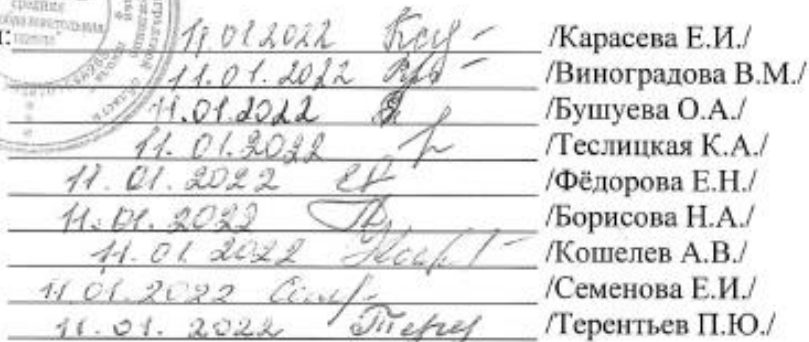 средняя
общеобразовательная
школа
: 11.01.2022 /Карасева Е.И./
11.01.2022 /Виноградова В.М./
11.01.2022 /Бушуева О.А./
11.01.2022 /Теслицкая К.А./
11.01.2022 /Фёдорова Е.Н./
11.01.2022 /Борисова Н.А./
11.01.2022 /Кошелев А.В./
11.01.2022 /Семенова Е.И./
11.01.2022 /Терентьев П.Ю./